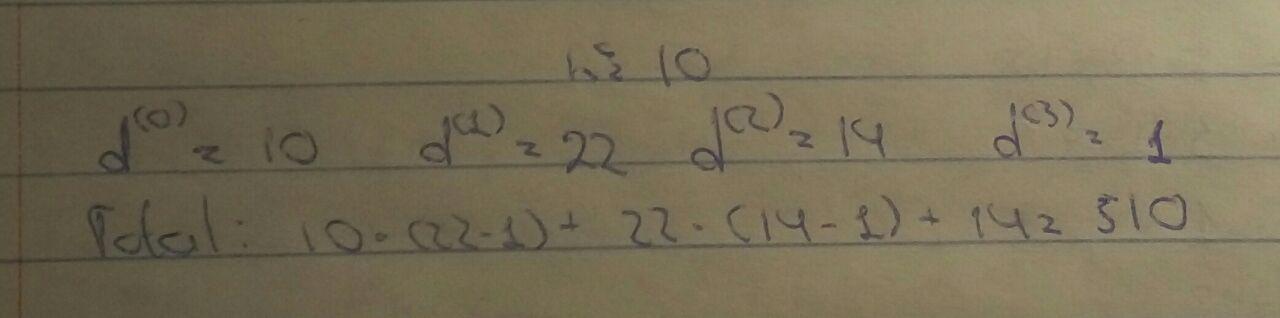 10
d^(0) = 10 d^(1) = 22 d^(2) = 14 d^(3) = 1
Total: 10·(22-1) + 22·(14-1) + 14 = 510